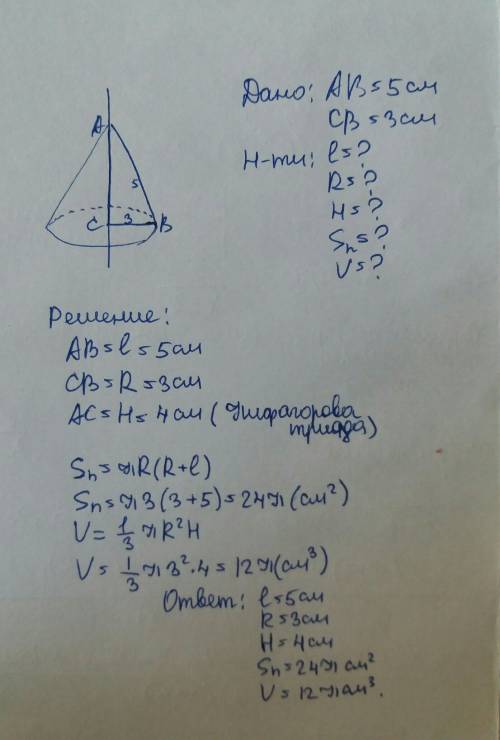 Дано: AB = 5 см
CB = 3 см
Н-ти: l = ?
R = ?
H = ?
Sп = ?
V = ?
A
5
C 3 B
Решение:
AB = l = 5 см
CB = R = 3 см
AC = H = 4 см (Пифагорова
триада)
Sп = πR(R+l)
Sп = π3(3+5) = 24π(см²)
V = 1/3 πR²H
V = 1/3 π3²·4 = 12π(см³)
Ответ: l = 5 см
R = 3 см
H = 4 см
Sп = 24π см²
V = 12π см³.